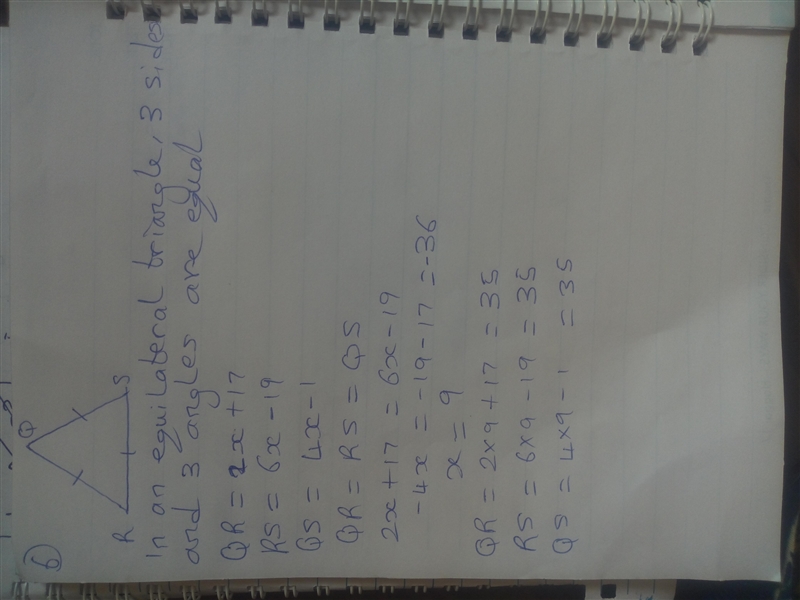 6)
Q
R
S
In an equilateral triangle, 3 sides
and 3 angles are equal
QR = 2x+17
RS = 6x -19
QS = 4x-1
QR = RS = QS
2x+17 = 6x-19
-4x = -19-17 = -36
x = 9
QR = 2x9+17 = 35
RS = 6x9-19 = 35
QS = 4x9-1 = 35